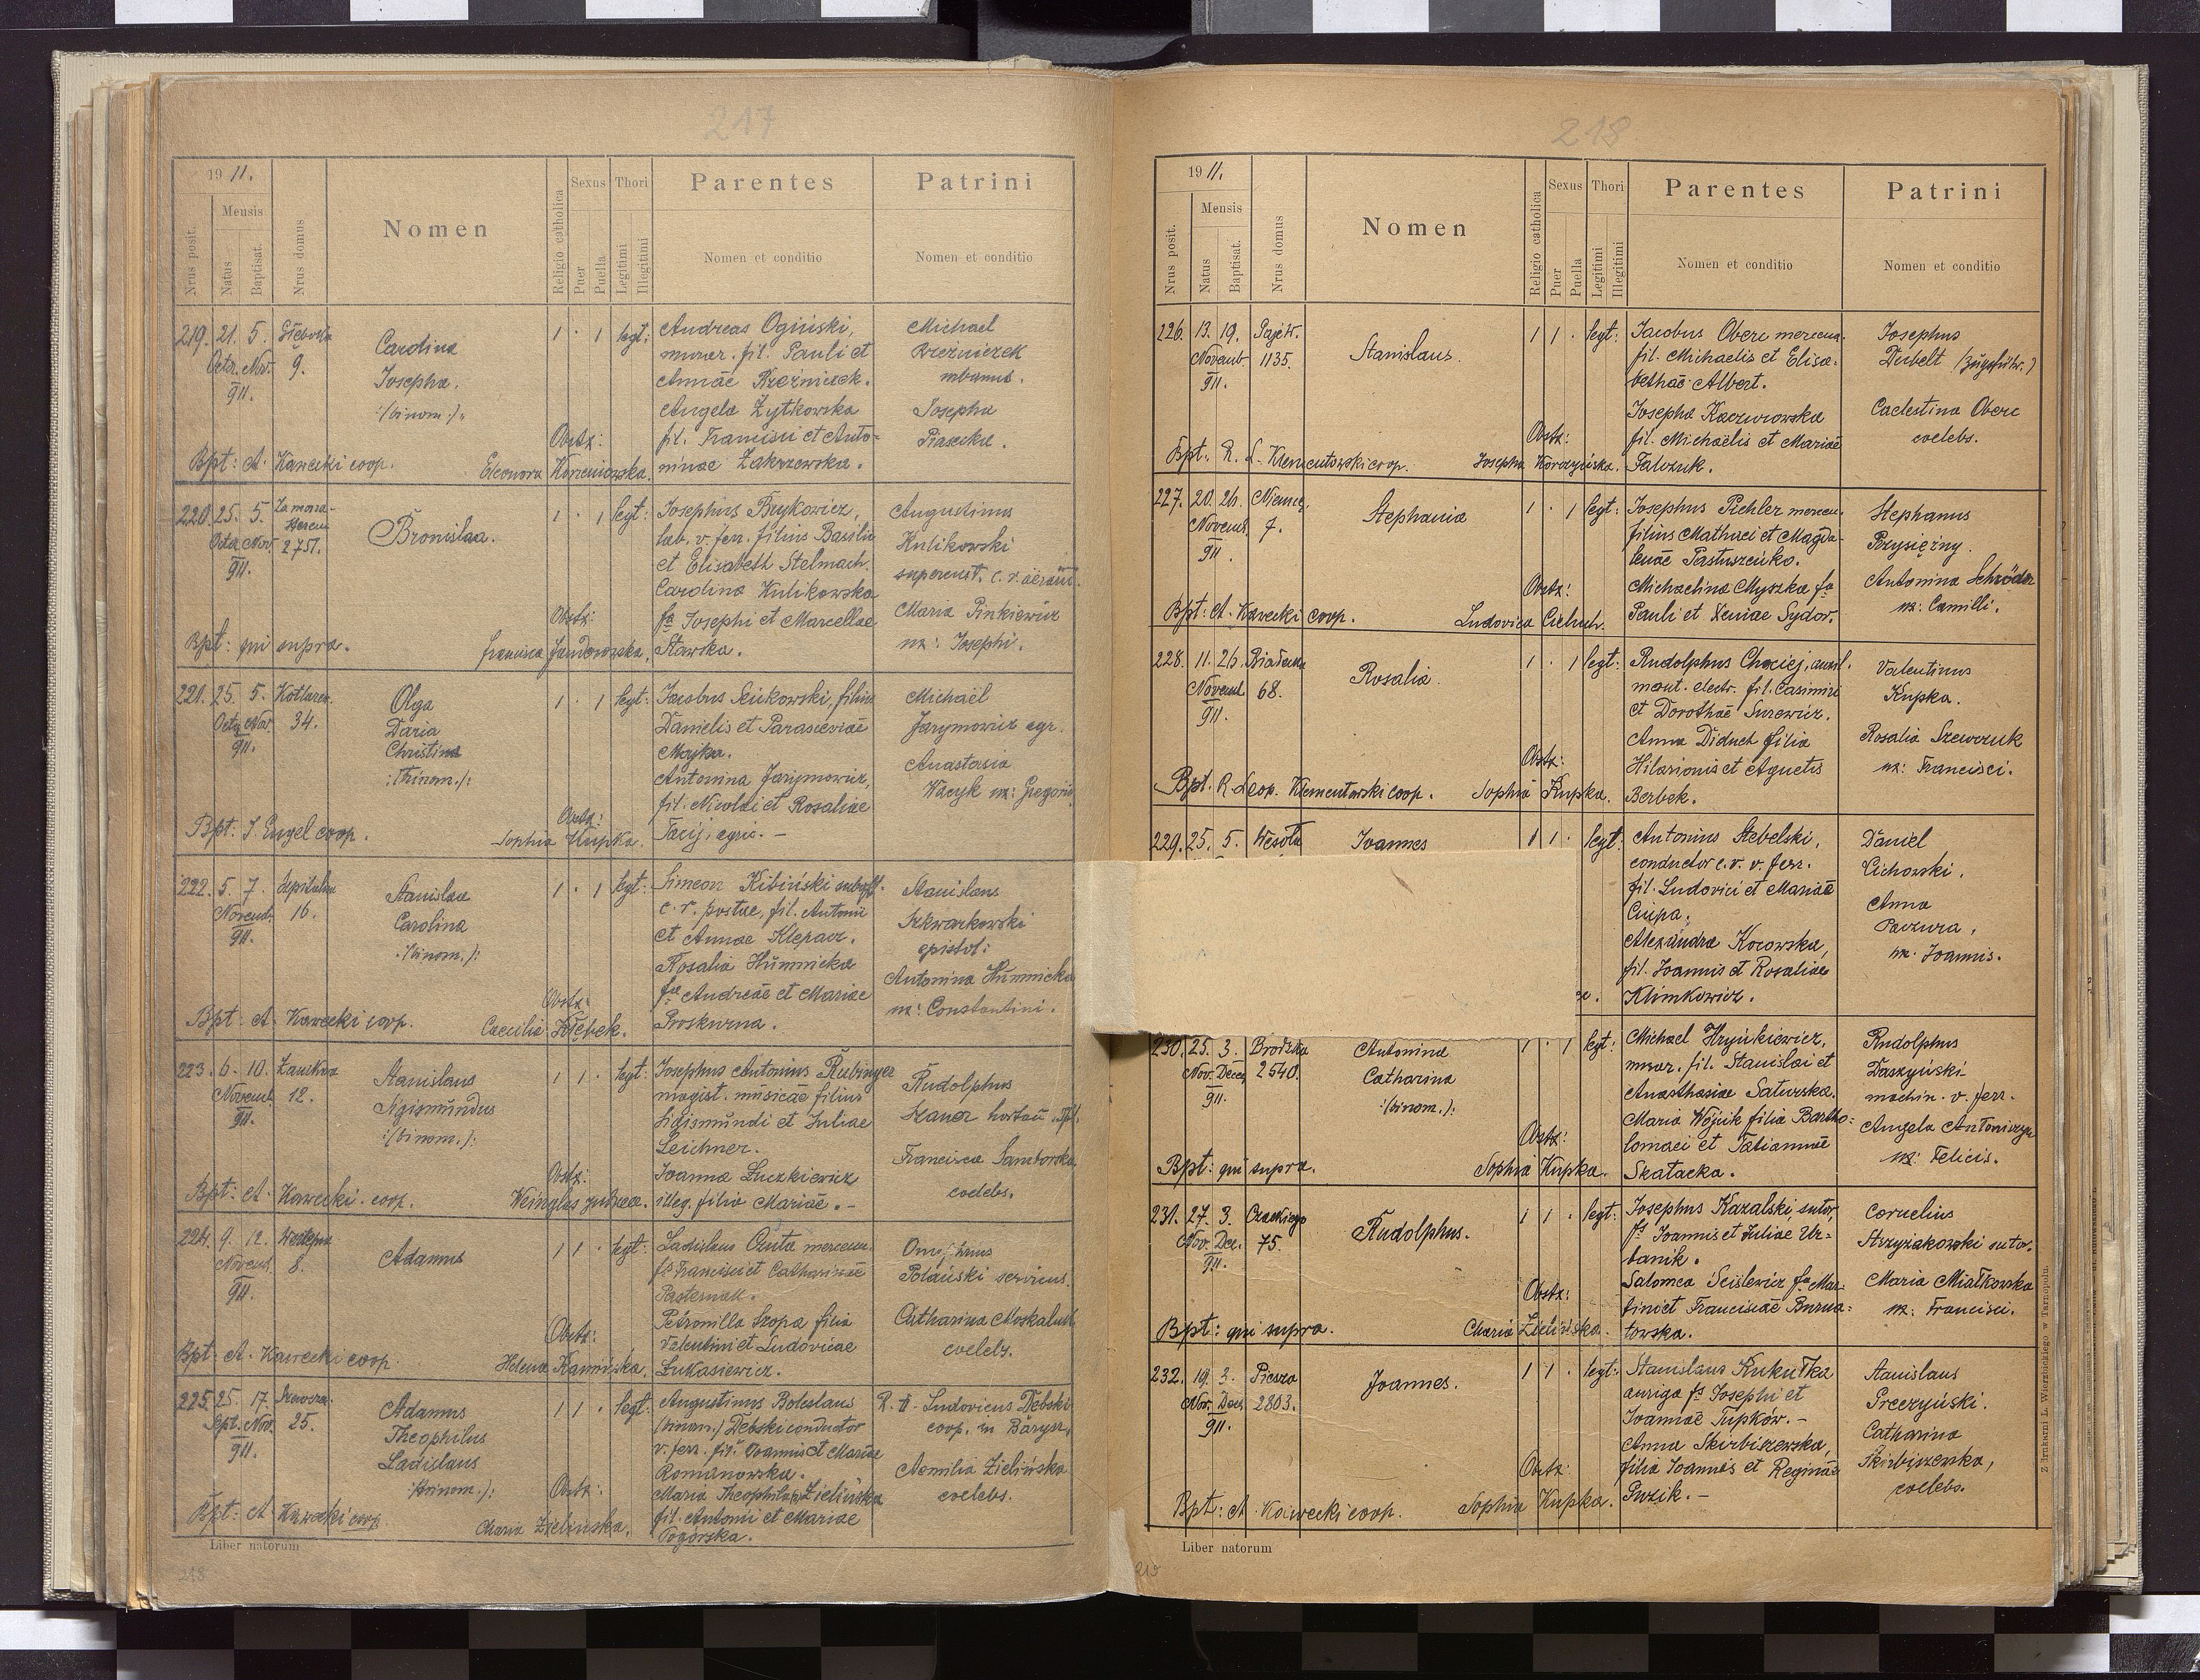 217
1911.
Nrus posit.
Mensis
Natus
Baptisat.
Nrus domus
Nomen
Religio catholica
Sexus
Puer
Puella
Thori
Legitimi
Illegitimi
Parentes
Nomen et conditio
Patrini
Nomen et conditio
219. 21. 5.
Octr. Nov. 9.
911.
Carolina
Josepha.
:/binom:/:
1 · 1 legt:
Andreas Ogiński,
murar. fil. Pauli et
Annae
Angela Żytkowska
fil. Francisci et Anto-
ninae Zakrzewska.
Michael
Brzeźniczek
urbanus.
Josepha
Piasecka.
Obstx:
Bpt: A. Kawecki coop.
Eleonora Korzeniowska.
220. 25. 5. Za mona-
sterem
Octr. Nov. 2751.
911.
Bronislaa.
1 · 1 legt:
Josephus Brykowicz,
lab. v. ferr. filius Basilii
et Elisabeth Stelmach.
Carolina Kulikowska
fa Josephi et Marcellae
Stawska.
Augustinus
Kulikowski
Maria Pinkiewicz
ux: Josephi.
Obstx:
Bpt: qui supra.
Francisca Jandrowska.
221. 25. 5.
Octr. Nov. 34.
911.
Olga
Daria
Christina
:/trinom./:
1 · 1 legt:
Jacobus filius
Danielis et Parasceviae
Majka.
Antonina Jarymowicz,
fil. Nicolai et Rosaliae
Tacij, agric. –
Michaël
Jarymowicz agr.
Anastasia
Wacyk ux: Gregorii
Obstx:
Bpt: J. Engel coop.
Sophia Kupka.
222. 5. 7.
Novemb. 16.
911.
Stanislaa
Carolina
:/binom./:
1 · 1 legt:
Simeon Kibiński
c. r. postae, fil. Antonii
et Annae Klepacz.
Rosalia Humnicka
fa Andreae et Mariae
Proskurna.
Stanislaus
Szkwarkowski
epistol:
Antonina Humnicka
ux: Constantini.
Obstx:
Bpt: A. Kawecki coop.
Caecilia Kłębek.
223. 6. 10.
Novemb. 12.
911.
Stanislaus
Sigismundus
:/binom./:
1 1 · legt:
Josephus Antonius Rubinger
magist. musicae filius
Sigismundi et Juliae
Leichner.
Joanna Łuczkiewicz
illeg. filia Mariae. –
Rudolphus
Francisca Samborska
coelebs.
Obstx:
Bpt: A. Kawecki. coop.
224. 9. 12.
Novemb. 8.
911.
Adamus
1 1 · legt:
Ladislaus mercen.
fs Francisci et Catharinae
Pasternak.
Petronilla Szopa filia
Valentini et Ludovicae
Łukasiewicz.
Onuphrius
Polański servus.
Catharina Moskaluk
coelebs.
Obstx:
Bpt: A. Kawecki coop.
Helena Kamińska.
225. 25. 17.
Spt. Nov. 25.
911.
Adamus
Theophilus
Ladislaus
:/trinom./:
1 1 · legt:
Augustinus Boleslaus
/binom./ Dębski conductor
v. ferr. fil. Joannis et Mariae
Romanowska.
Maria Theophila Zielińska
fil. Antonii et Mariae
Pogórska.
R. D. Ludovicus Dębski
coop. in Barysz.
Aemilia Zielińska
coelebs.
Obstx:
Bpt: A. Kawecki coop.
Maria Zielińska.
Liber natorum
218
218
1911.
Nrus posit.
Mensis
Natus
Baptisat.
Nrus domus
Nomen
Religio catholica
Sexus
Puer
Puella
Thori
Legitimi
Illegitimi
Parentes
Nomen et conditio
Patrini
Nomen et conditio
226. 13. 19.
Novemb. 1135.
911.
Stanislaus.
1 1 · legt:
Jacobus Oberc mercena.
fil. Michaelis et Elisa-
bethae Albert.
Josepha Kaczurowska
fil. Michaelis et Mariae
Josephus
Dubelt /Zugsführ./
Caelestina Oberc
coelebs.
Obstx:
Bpt. R. L. Klementowski coop.
Josepha Korczyńska.
227. 20. 26.
Novemb. 7.
911.
Stephania
1 · 1 legt:
Josephus Pichler mercen.
filius Mathaei et Magda-
lenae Pastuszenko.
Michaelina Myszka fa
Pauli et Xeniae Sydor.
Stephanus
Przysiężny.
Antonina Schröder
ux: Camilli.
Obstx:
Bpt: A. Kawecki coop.
Ludovica Cichuch.
228. 11. 26.
Novemb. 68.
911.
Rosalia.
1 · 1 legt:
mont. electr. fil. Casimiri
et Dorotheae Surewicz.
Anna Diduch filia
Hilarionis et Agnetis
Berbek.
Valentinus
Kupka.
Rosalia Szewczuk
ux: Francisci.
Obstx:
Bpt. R. Leop. Klementowski coop.
Sophia Kupka.
229. 25. 5. Wesoła
Joannes
1 1 · legt:
Antonius Stebelski,
conductor c. r. v. ferr.
fil. Ludovici et Mariae
Alexandra Kocowska,
fil. Joannis et Rosaliae
Klimkowicz.
Daniel
Cichowski.
Anna
Paczura,
ux. Joannis.
230. 25. 3. Brodzka
Nov. Dece. 2540.
911.
Antonina
Catharina
:/binom./:
1 · 1 legt:
Michael Hryńkiewicz,
murar. fil. Stanislai et
Anasthasiae Saturska.
Maria Wójcik filia Bartho-
lomaei et Tatiannae
Skatacka.
Rudolphus
Daszyński
machin. v. ferr.
Angela Antoniszyn
ux: Felicis.
Obstx:
Bpt: qui supra.
Sophia Kupka.
231. 27. 3. Czackiego
Nov. Dec. 75.
911.
Rudolphus.
1 1 · legt:
Josephus Kazalski sutor,
fs Joannis et Juliae Ur-
banik.
Salomea Scislewicz fa Mar-
tini et Franciscae Burna-
towska.
Cornelius
Strzyżakowski sutor.
Maria Miałkowska
ux: Francisci.
Obstx:
Bpt: qui supra.
Maria Zielińska.
232. 19. 3.
Nov. Dec. 2803.
911.
Joannes.
1 1 · legt:
Stanislaus Kukułka
auriga fs Josephi et
Joannae Tupków. –
Anna Skirbiszewska,
filia Joannis et Reginae
Puzik. –
Stanislaus
Preczyński.
Catharina
Skirbiszewska,
coelebs.
Obstx:
Bpt: A. Kawecki coop.
Sophia Kupka.
Liber natorum
219
Z drukarni L. Wierzbickiego w Tarnopolu.